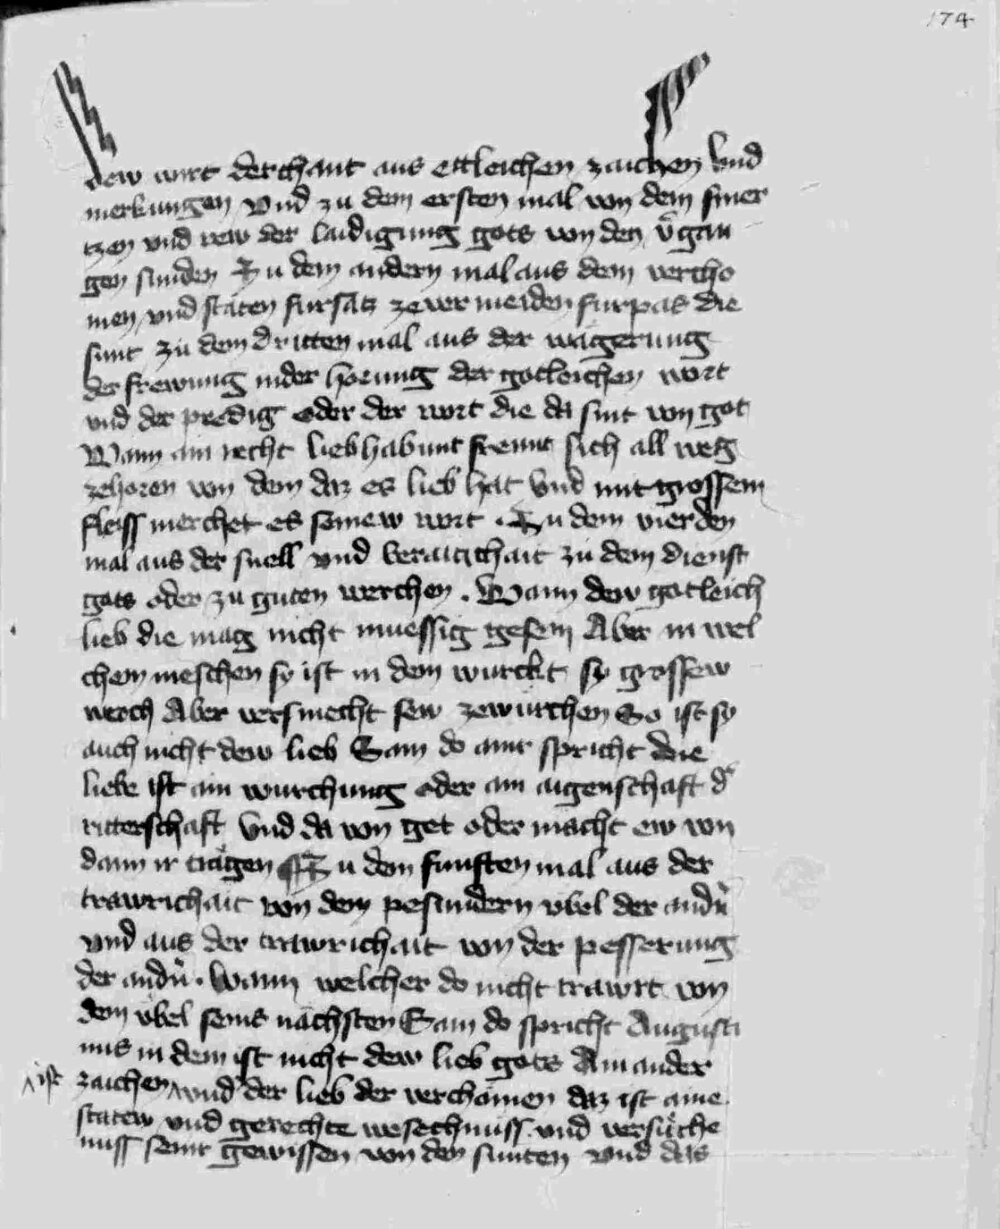 174
dew wirt derchant aus ettleichen zaichen vnd
merkungen vnd zu dem ersten mal von dem smer
tzen vnd rew der laidigung gots von den v̊gan
gen sunden Zu dem andern mal aus dem vercho
men vnd stäten fursatz zevermeiden furpas die
sunt zu dem dritten mal aus der wägerung
der frewung in der horung der gotleichen wort
vnd der predig oder der wort die da sint von got
Wann ain recht liebhabunt frewnt sich all weg
zehoren von dem daz es lieb hat vnd mit grossem
fleiss merchet es seinew wort . Zu dem vierden
mal aus der snell vnd beraitichait zu dem dienst
gots oder zu guten werchen . Wann dew gotleich
lieb die mag nicht muessig gesein Aber in wel
chem meschen sy ist in dem wurckt sy grossew
werch Aber versmecht sew zewurchen So ist sy
auch nicht dew lieb Sam do ainr spricht die
liebe ist ain wurchung oder ain aigenschaft d͛
ritterschaft Vnd da von get oder macht ew von
dann ir trägen Zu dem funften mal aus der
trawrichait von dem pesundern vbel der andn̄
vnd aus der trawrichait von der pesserung
der andn̄ . Wann welcher do nicht trawrt von
dem vbel seins nächsten Sam do spricht Augusti
nus in dem ist nicht dew lieb gots Ain ander
ist zaichen wnd der lieb der verchomen daz ist aine
statew vnd gerechte wesechnuss vnd versůche
nuss seinr gewissen von den sunten vnd das